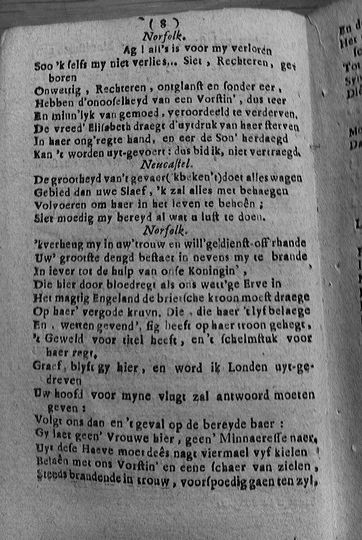 ( 8 )
Norfolk.
Ag! all's is voor my verloren
Soo 'k selfs my niet verlies... Siet, Rechteren, ge-
boren
Onwettig, Rechteren, ontglanst en sonder eer,
Hebben d'onooselheyd van een Vorstin, dus teer
En minn'lyk van gemoed, veroordeeld te verderven.
De vreed' Elisabeth draegt d'uytdruk van haer sterven
In haer ong'regte hand, en eer de Son' herdaegd
Kan 't worden uyt-gevoert: dus bid ik, niet vertraegd.
Neucastel.
De grootheyd van't gevaer('kbeken't)doet alles wagen
Gebied dan uwe Slaef, 'k zal alles met behaegen
Volvoeren om haer in het leven te behoên;
Siet moedig my bereyd al wat u lust te doen.
Norfolk.
'kverheug my in uw'trouw en will'ge dienst-offrhande
Uw' grootste dengd bestaet in nevens my te brande
In iever tot de hulp van onse Koningin',
Die hier door bloedregt als ons wett'ge Erve in
Het magtig Engeland de brietsche kroon moest draege
Op haer' vergode kruyn. Die, die haer 'tlyf belaege
En, wetten gevend', sig heeft op haer troon gehegt,
't Geweld voor titel heeft, en 't schelmstuk voor
haer regt,
Graef, blyft gy hier, en word ik Londen uyt-ge-
dreven
Uw hoofd voor myne vlugt zal antwoord moeten
geven:
Volgt ons dan en 't geval op de bereyde baer:
Gy laet geen' Vrouwe hier, geen' Minnaeresse naer,
Uyt dese Haeve moet deês nagt viermael vyf kielen
Belaên met ons Vorstin' en eene schaer van zielen,
Steeds brandende in trouw, voorspoedig gaen ten zyl,